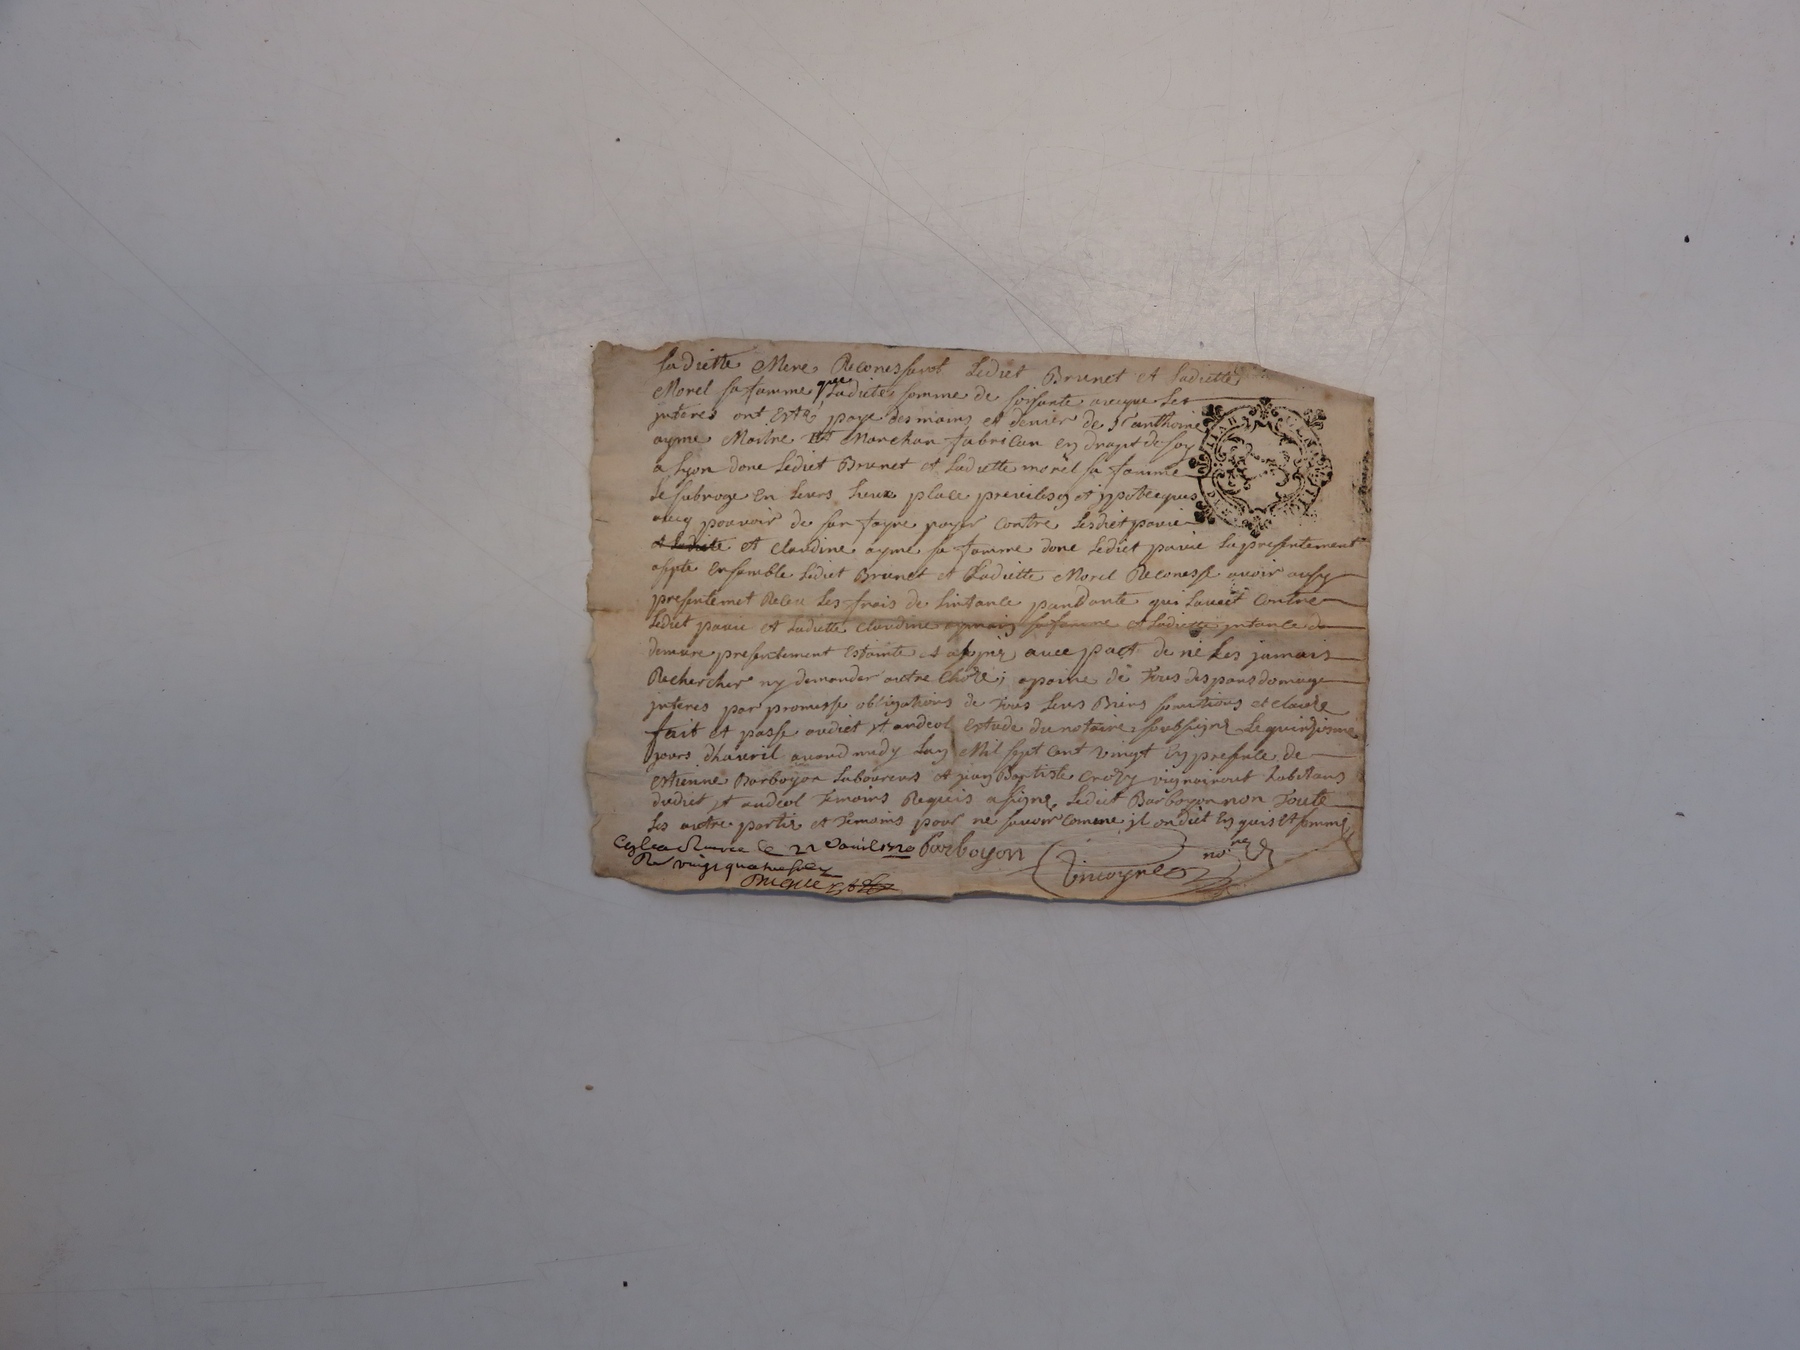 ladiette Mere Reconessavot Lediet Brunet et ladiette
Morel sa famme que Ladiete somme de soisante avecque les
jnteres ont Este paye des mains et denier de st anthoine
ayme Maitre Marchan fabrican en drapt de soy
a lyon done lediet Brunet et ladiette morel sa famme
le subroge En leurs lieux place previlesg et jpoteques
avecq pouvoir de san fayre payer contre lesdiet pavie
et ladiete et claudine ayme sa famme done lediet pavie La presentement
apte Ensamble lediet Brunet et Ladiette Morel Reconesse avoir ausy
presentemet Receu Les frais de lintance pandante qui lavoet contre
lediet pavie et ladiette claudine sa famme et ladiette jntance de
demure presentement Estainte et avec pact de ne les jamais
Rechercher ny demander autre Choze a paine de Tous despans domage
jnteres par promesse obligations de tous leurs Biens et clauze
fait et passe audiet st andeol Estude du notaire soubsigne Le quinzieme
jours dhavril avand midy Lan Mil sept cent vingt En presence de
Estienne Barboyon Laboureus et jean Baptiste crozy vigneiront habitans
dudiet st andeol Temoins Requis a signe Lediet Barboyon non Toute
les autre partie et Temoins pour ne savoir comme jl on diet Enquis et somme
le 21 avril 1720 Barboyon
Re vingt quatre sols